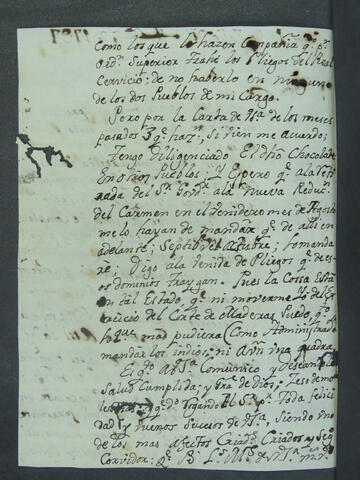 como los que lo hazen Compañia q.e p.r
ord.n Superior trahe los Pliegos del Real
Servicio; de no haberlo en ninguno
de los dos Pueblos de mi Cargo.
Pero por la Carta de V.a de los meses
pasados q.e haz.n, Si bien me acuerdo;
Tengo Diligenciado El dho Chocolate
En otros Pueblos; Y Espero q.e a la
del S.r Gov.r a la Nueva Reduc.n
del Carmen en el Venidero mes de Agosto
me lo hayan de mandar q.e de alli en
adelante; ô; tomanda
re; Digo a la Venida de Pliegos q.e de es
os dominios traygan. Pues la Cossa Esta
en tal Estado, q.e ni moverme Yo del Ex
ercicio del Corte de Maderas Puedo, q.e
lo que mas pudiera (Como Administrador
mandar los indios; ni Aun Una quadra
Es q.to A V.a Comunico y Deseando
Salud Cumplida; y Gra de Dios,
q.do Rogando al S.r p.r Toda felici
dad y buenos Sucesos de V.a, Siendo Uno
de los mas afectos Criados y Seg.o
Servidor: q.e B. L. M.s de V.a m.s a.s